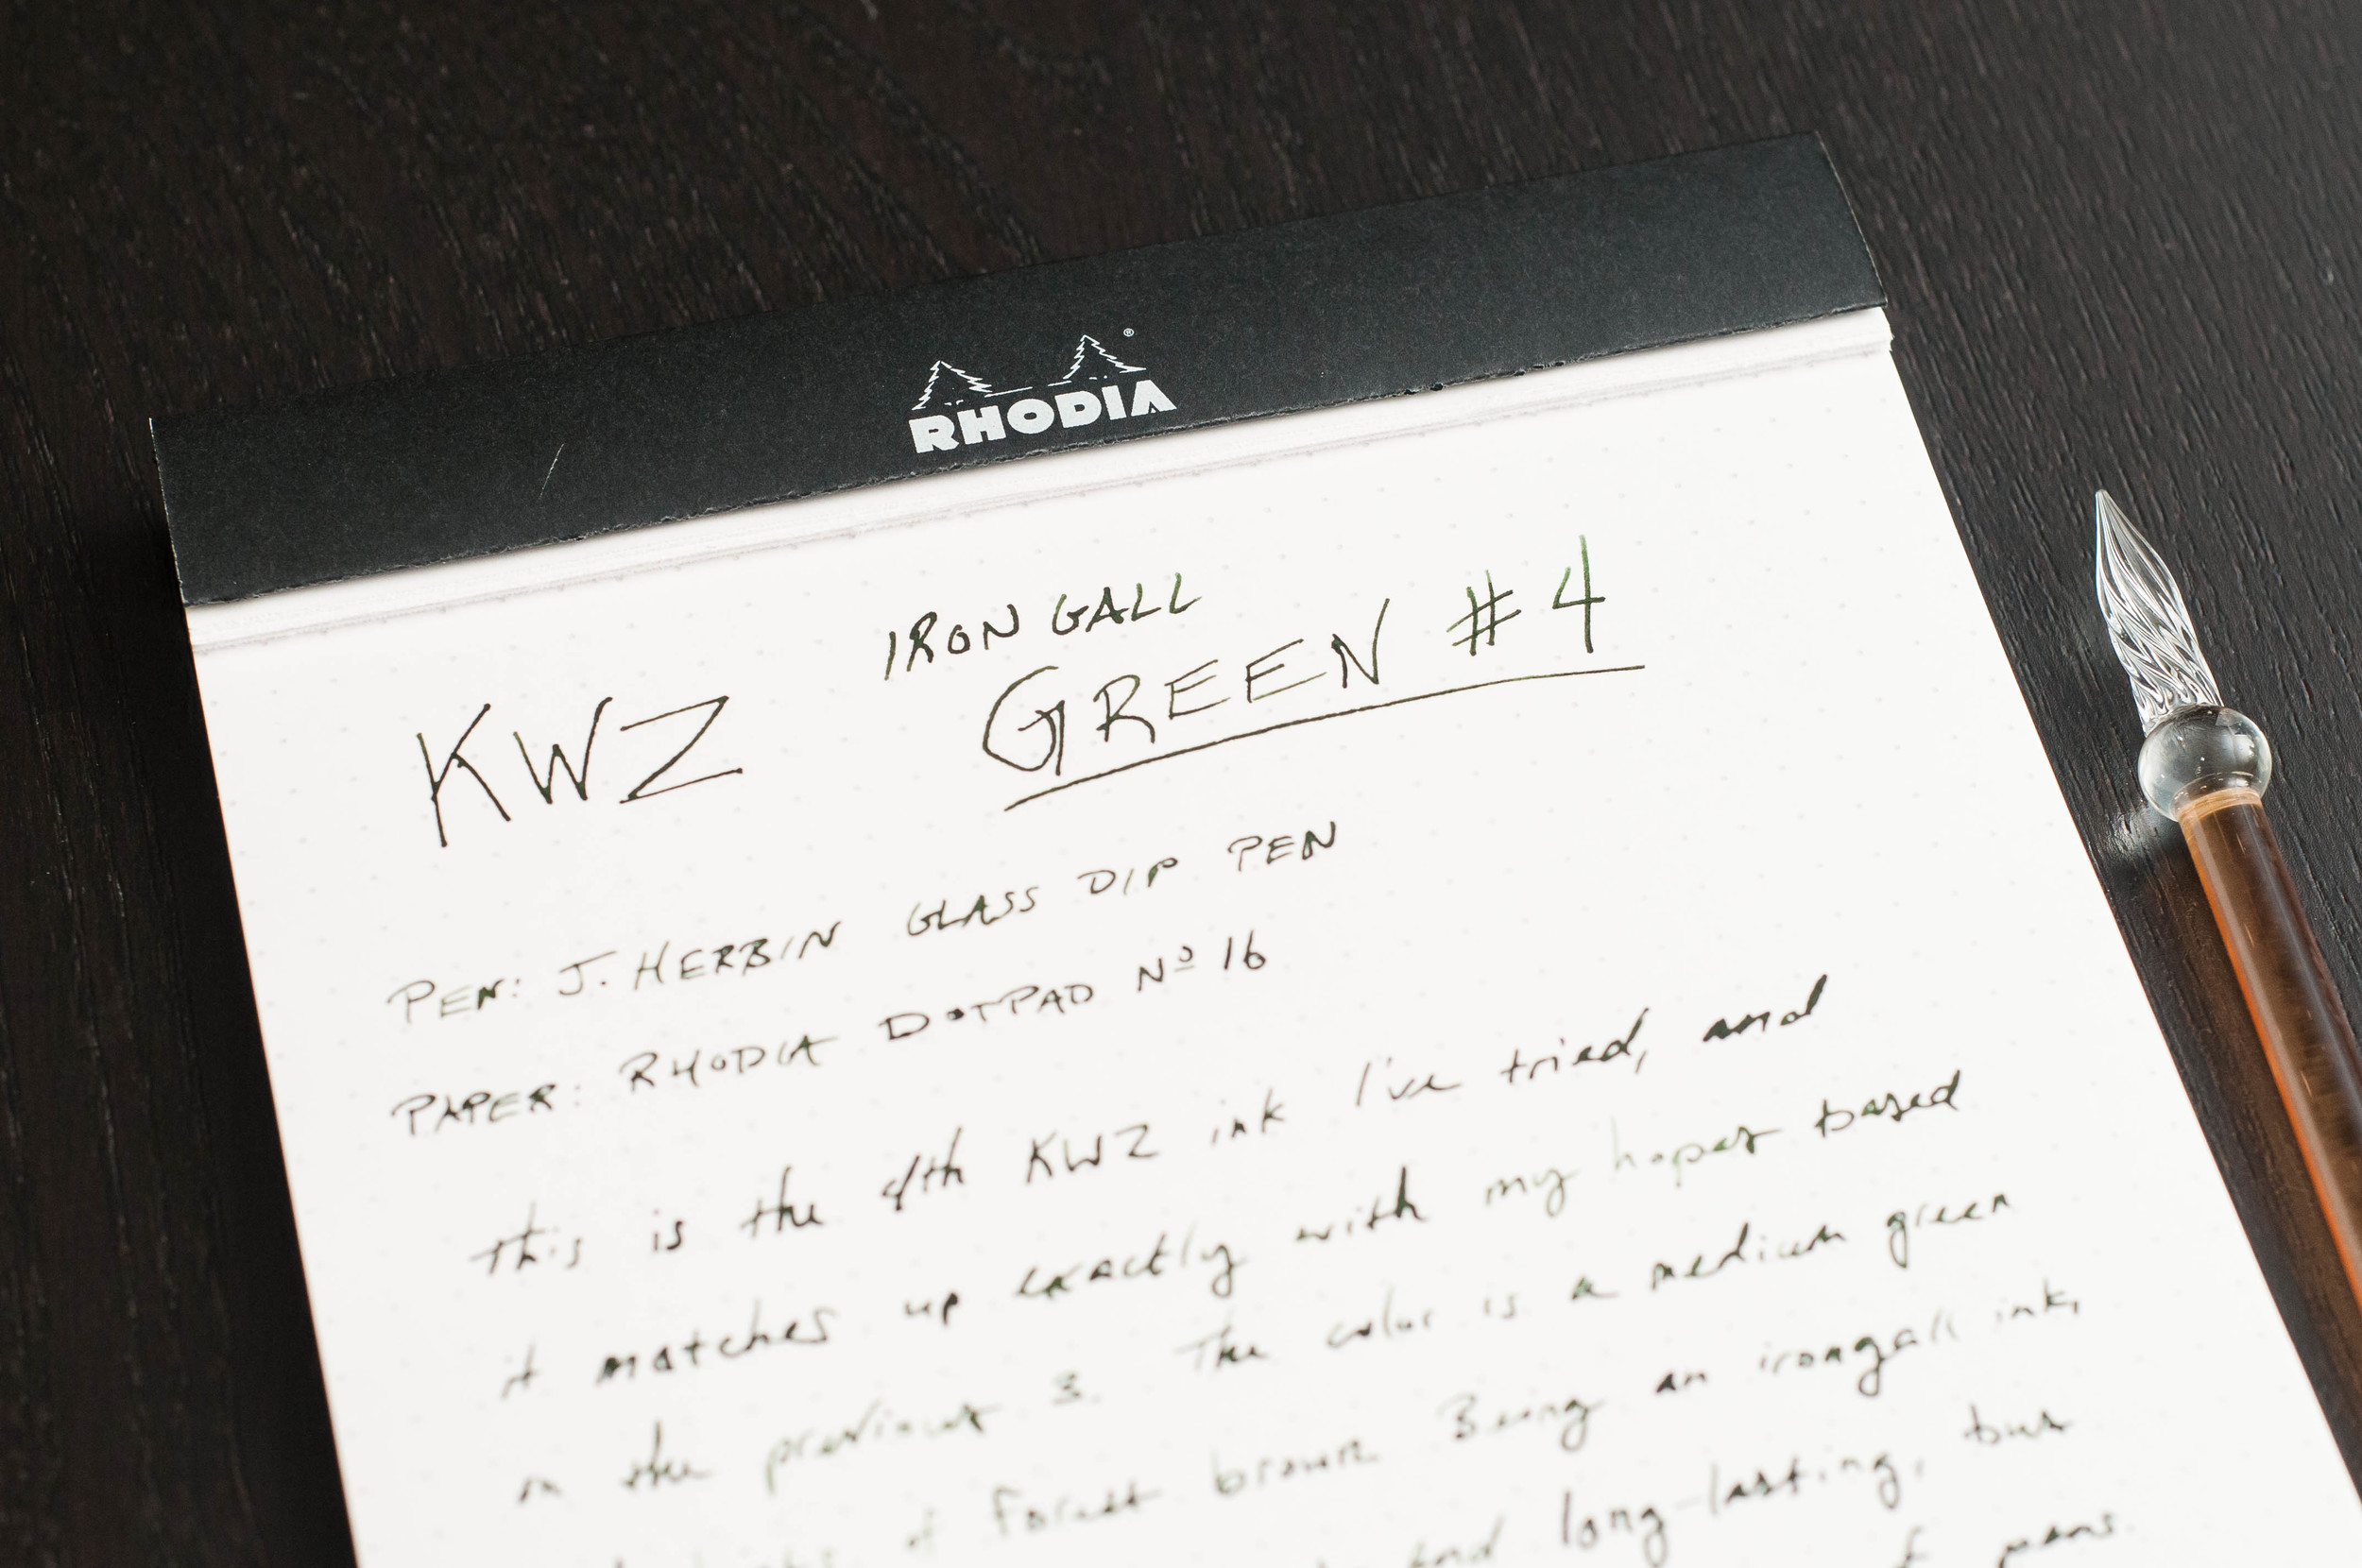 RHODIA®
IRON GALL
KWZ GREEN #4
PEN: J. HERBIN GLASS DIP PEN
PAPER: RHODIA DOTPAD Nº 16
This is the 4th KWZ ink I've tried, and
it matches up exactly with my hopes based
on the previous 3. The color is a medium green
of forest brown Being an irongall ink,
and long-lasting, but
of pens.